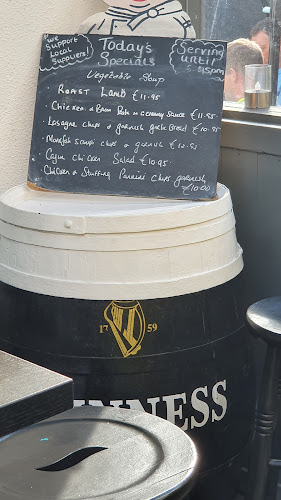 we
Support
Local
Suppliers!
Today's
Specials
Serving
until
5:15pm
Vegetable Soup
ROAST LAMB €11.95
Chicken & Ham in Creamy Sauce €11.95
Lasagne chips & garnish garlic Bread €10.95
Monkfish scampi chips & garnish €12.51
Cajun Chicken Salad €10.95
Chicken & Stuffing Pannini chips garnish
€10.00
17 59
GUINNESS